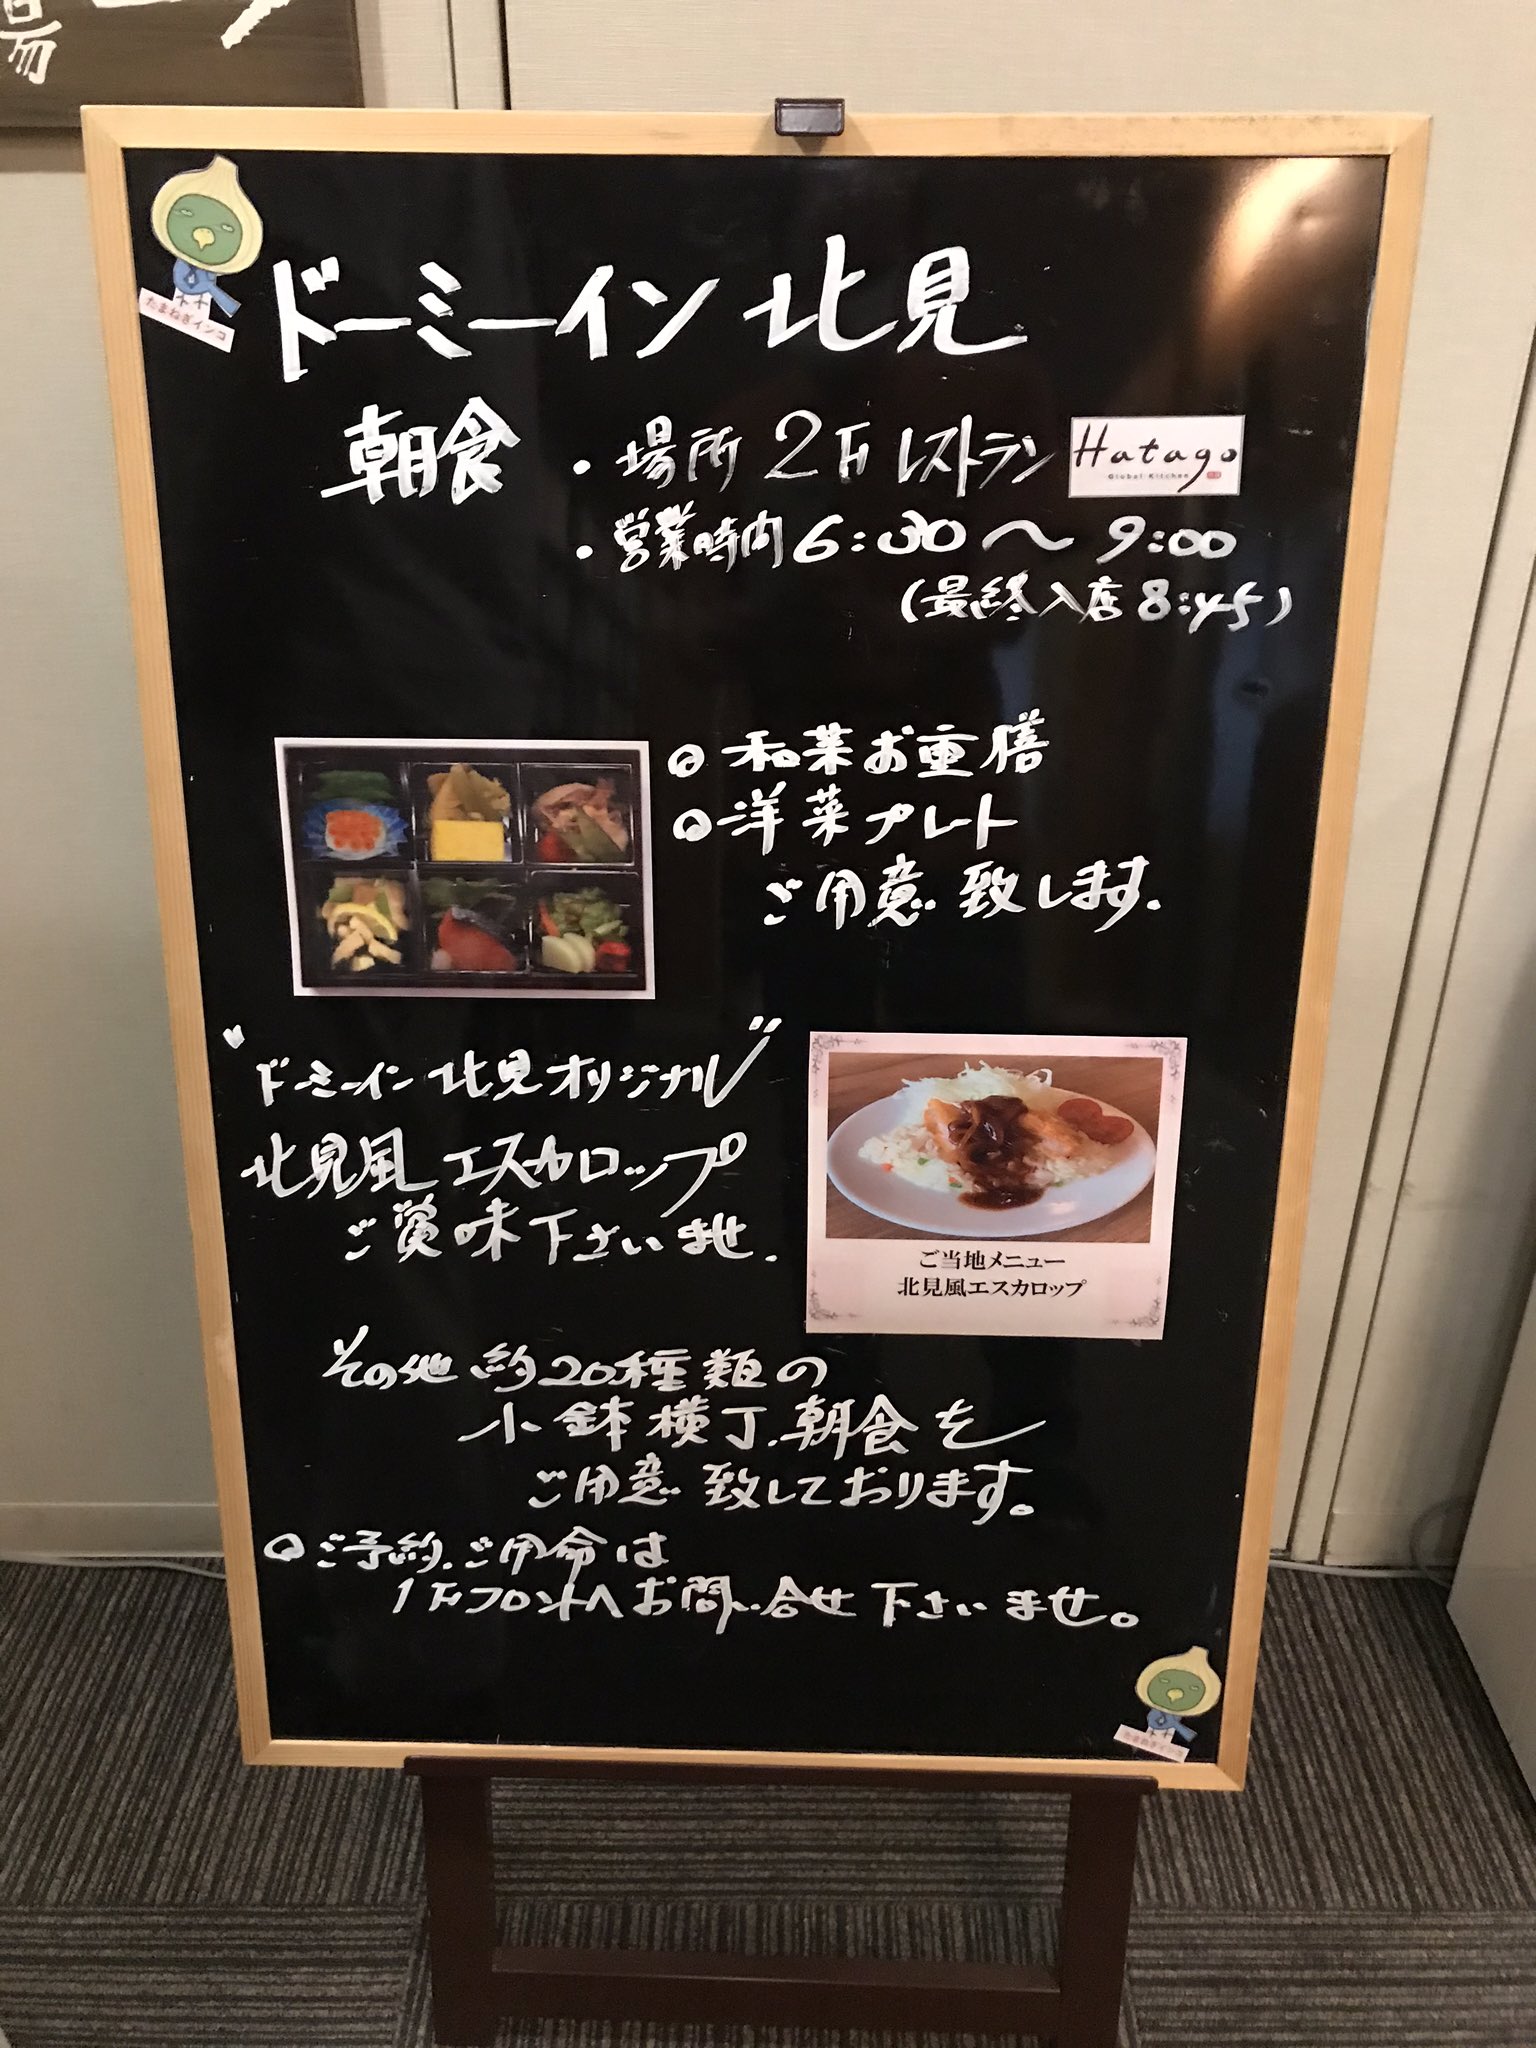 場
たまねぎインコ
ドーミーイン 北見
朝食 ・場所 2F レストラン Hatago
Global Kitchen
・営業時間 6:30〜9:00
(最終入店 8:45)
◎和菜お重膳
◎洋菜プレート
ご用意致します.
"ドーミーイン北見オリジナル"
北見風エスカロップ
ご賞味下さいませ.
ご当地メニュー
北見風エスカロップ
その他 約20種類の
小鉢横丁.朝食を
ご用意致しております。
○ご予約.ご用命は
1Fフロントへお問い合せ下さいませ。
たまねぎインコ